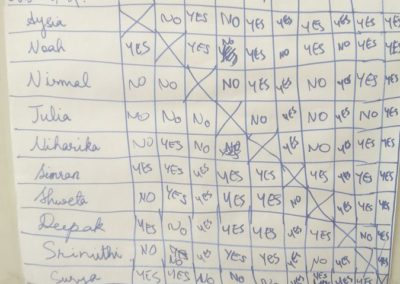 Aysia X NO YES NO YES YES YES YES YES YES
Noah YES X YES YES NO YES NO YES YES
Nirmal NO NO X NO YES YES NO YES YES YES
Julia NO NO NO X NO YES NO YES NO YES
Niharika NO YES NO X YES NO YES YES YES
Simran YES YES YES YES YES X YES YES YES YES
Shweta NO YES YES YES YES NO X YES YES YES
Deepak YES NO YES YES YES YES YES X NO YES
Srinithi NO YES YES YES YES NO YES X YES
Surya YES YES NO NO NO YES YES YES